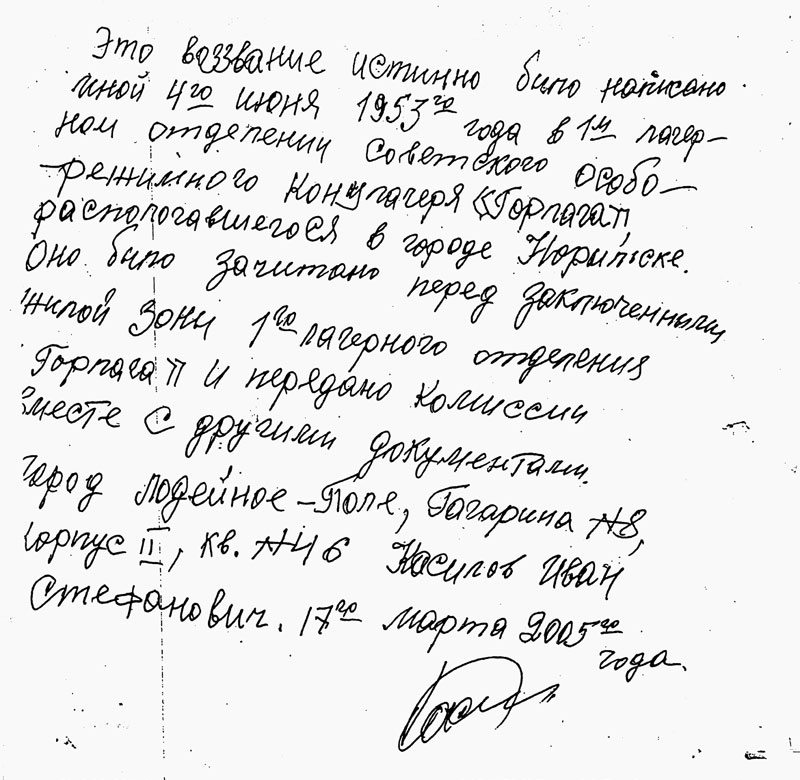 Это воззвание истинно было написано
мной 4го июня 1953го года в 1м лагер-
ном отделении Советского особо-
режимного Концлагеря «Горлага",
распологавшегося в городе Норильске.
Оно было зачитано перед заключенными
жилой зоны 1го лагерного отделения
Горлага" и передано комиссии
вместе с другими документами.
город Лодейное-Поле, Гагарина №8,
корпус II, кв. №46 Насилов Иван
Стефанович. 17го марта 2005го
года.